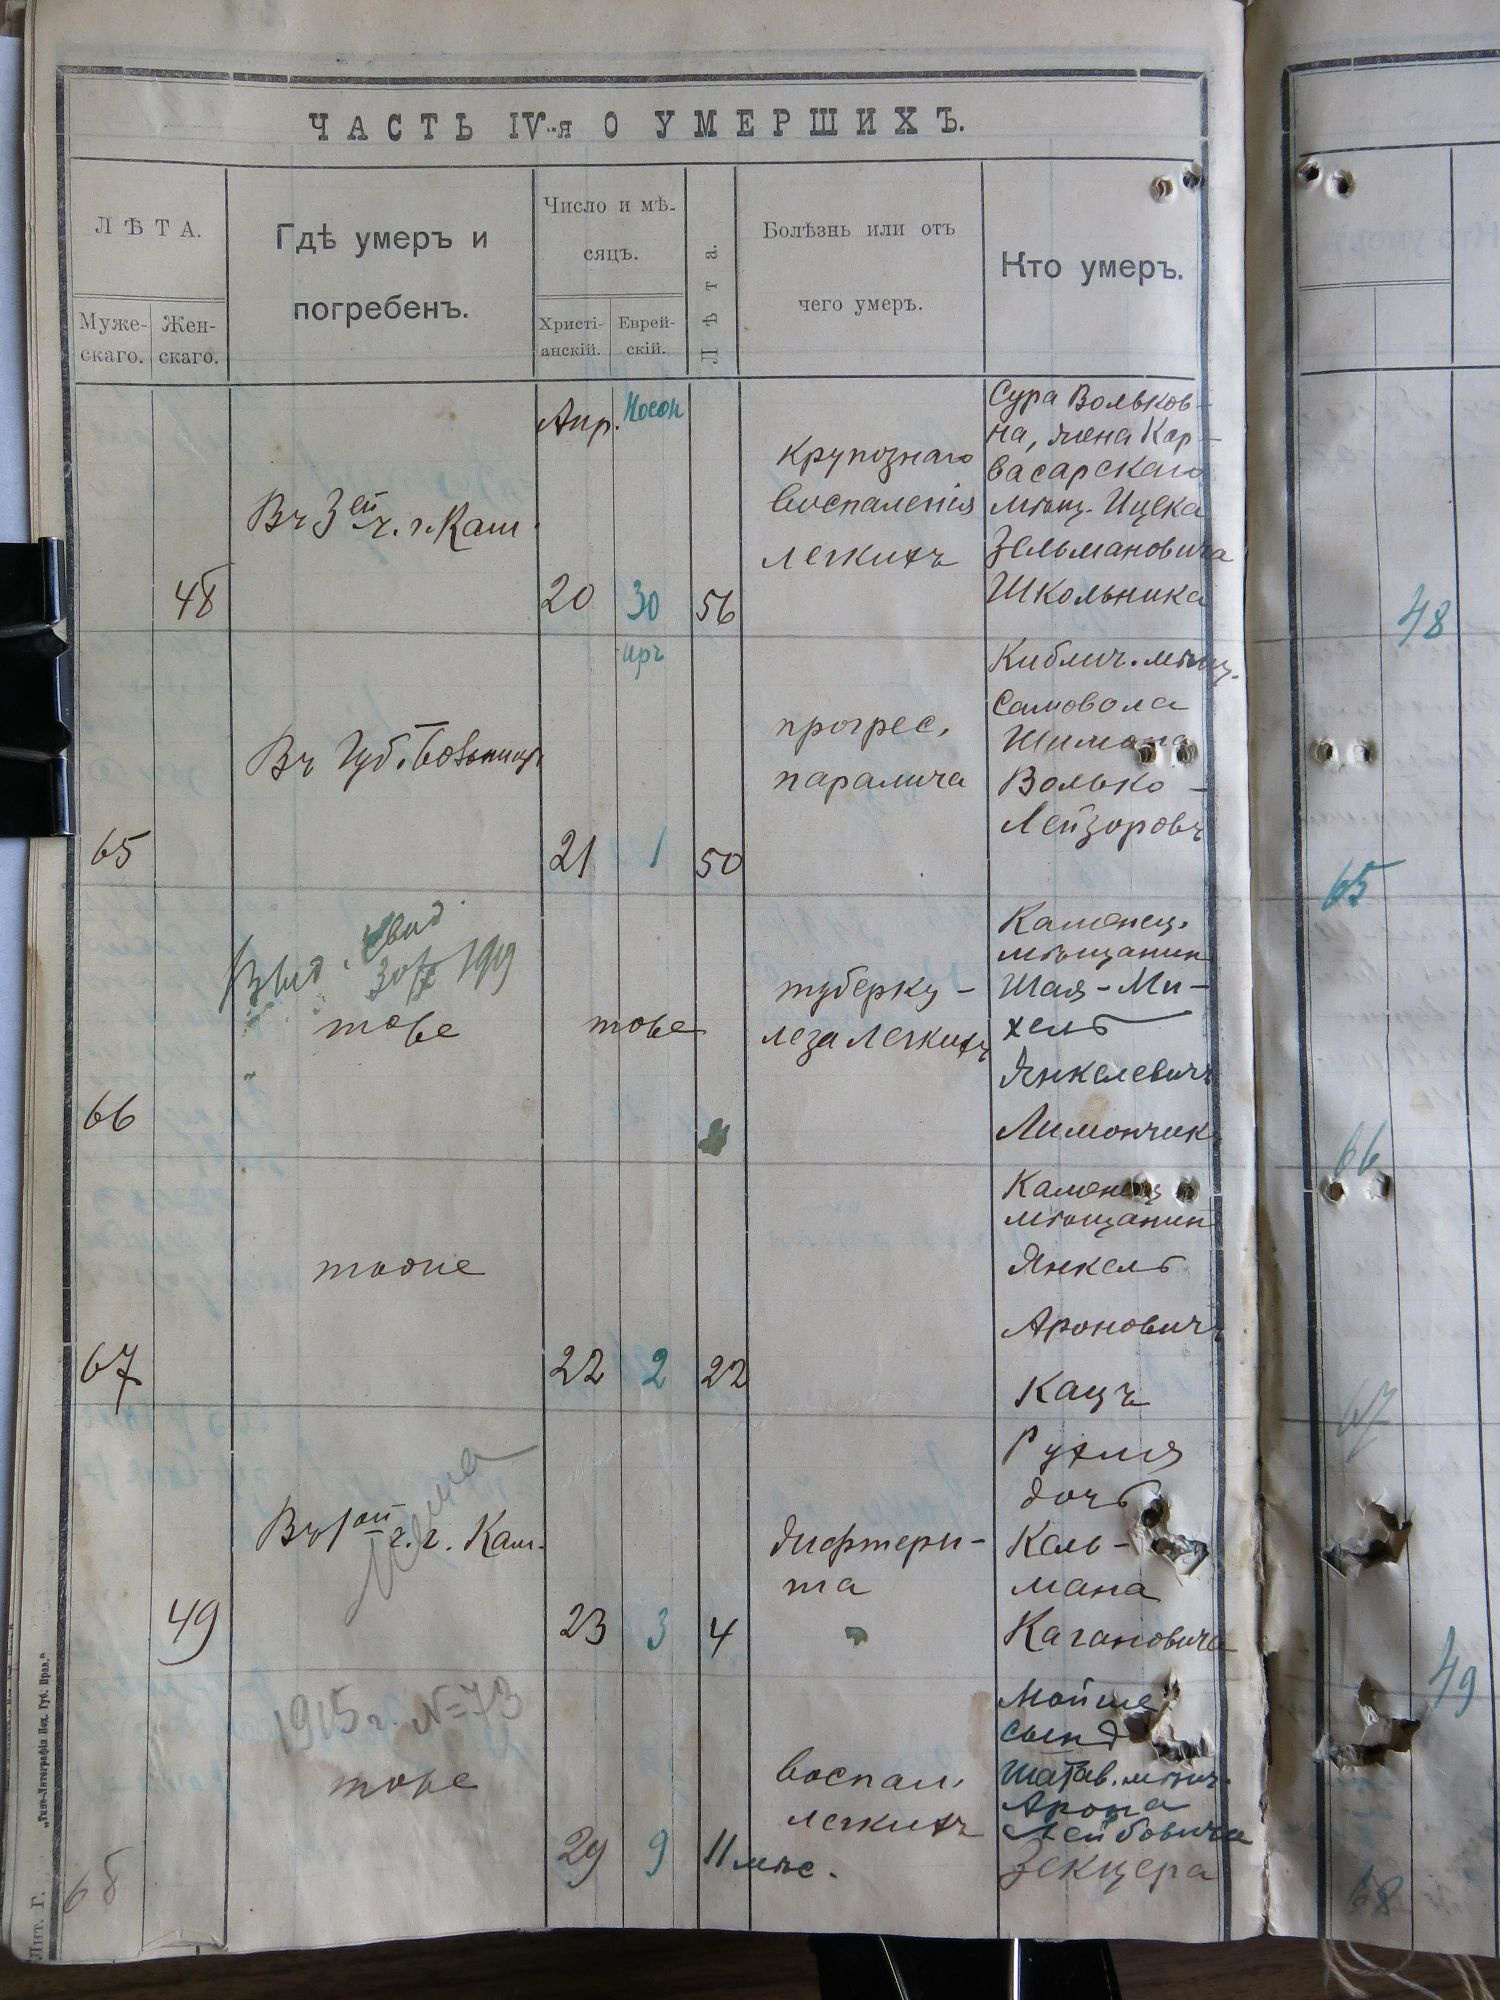 ЧАСТЬ IV-я О УМЕРШИХЪ.
ЛѢТА.
Муже-
скаго.
Жен-
скаго.
Гдѣ умеръ и
погребенъ.
Число и мѣ-
сяцъ.
Христі-
анскій.
Еврей-
скій.
Лѣта.
Болѣзнь или отъ
чего умеръ.
Кто умеръ.
48
Въ 3ей ч. г. Кам.
Апр.
20
Носон
30
56
крупознаго
воспаленія
легкихъ
Сура Вольков-
на, жена Кар-
васарскаго
мѣщ. Ицека
Зельмановича
Школьника
48
65
Въ Губ. больницѣ
21
иръ
1
50
прогрес.
паралича
Киблич. мѣщ.
Самовола
Шимона
Волько-
Лейзоровъ
65
66
Выд. свид.
1919
тоже
тоже
туберку-
леза легкихъ
Каменец.
мѣщанин
Шая-Ми-
хель
Янкелевичъ
Лимончикъ
66
67
тоже
22
2
22
Каменец
мѣщанин
Янкель
Ароновичъ
Кацъ
67
49
Въ 1ой ч. г. Кам.
23
3
4
дифтери-
та
Рухля
дочь
Каль-
мана
Кагановича
49
68
1915 г. №73
тоже
29
9
11 мѣс.
воспал.
легкихъ
Мойше
сынъ
Шатав. мѣщ.
Арона
Лейбовича
Зекцера
68
Лит. Г.
„Типо-Литографія Под. Губ. Прав."